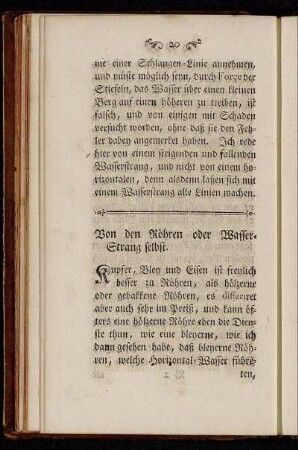 20
me einer Schlangen-Linie annehmen,
und müste möglich seyn, durch Force der
Stiefeln, das Wasser über einen kleinen
Berg auf einen höheren zu treiben, ist
falsch, und von einigen mit Schaden
versucht worden, ohne daß sie den Feh-
ler dabey angemerket haben. Ich rede
hier von einem steigenden und fallenden
Wasserstrang, und nicht von einem ho-
rizontalen, denn alsdenn lassen sich mit
einem Wasserstrang alle Linien machen.
Von den Röhren oder Wasser-
Strang selbst.
Kupfer, Bley und Eisen ist freylich
besser zu Röhren, als hölzerne
oder gebakkene Röhren, es differiret
aber auch sehr im Preiß, und kann öf-
ters eine hölzerne Röhre eben die Dien-
ste thun, wie eine bleyerne, wie ich
dann gesehen habe, daß bleyerne Röh-
ren, welche Horizontal-Wasser führe-
ten,